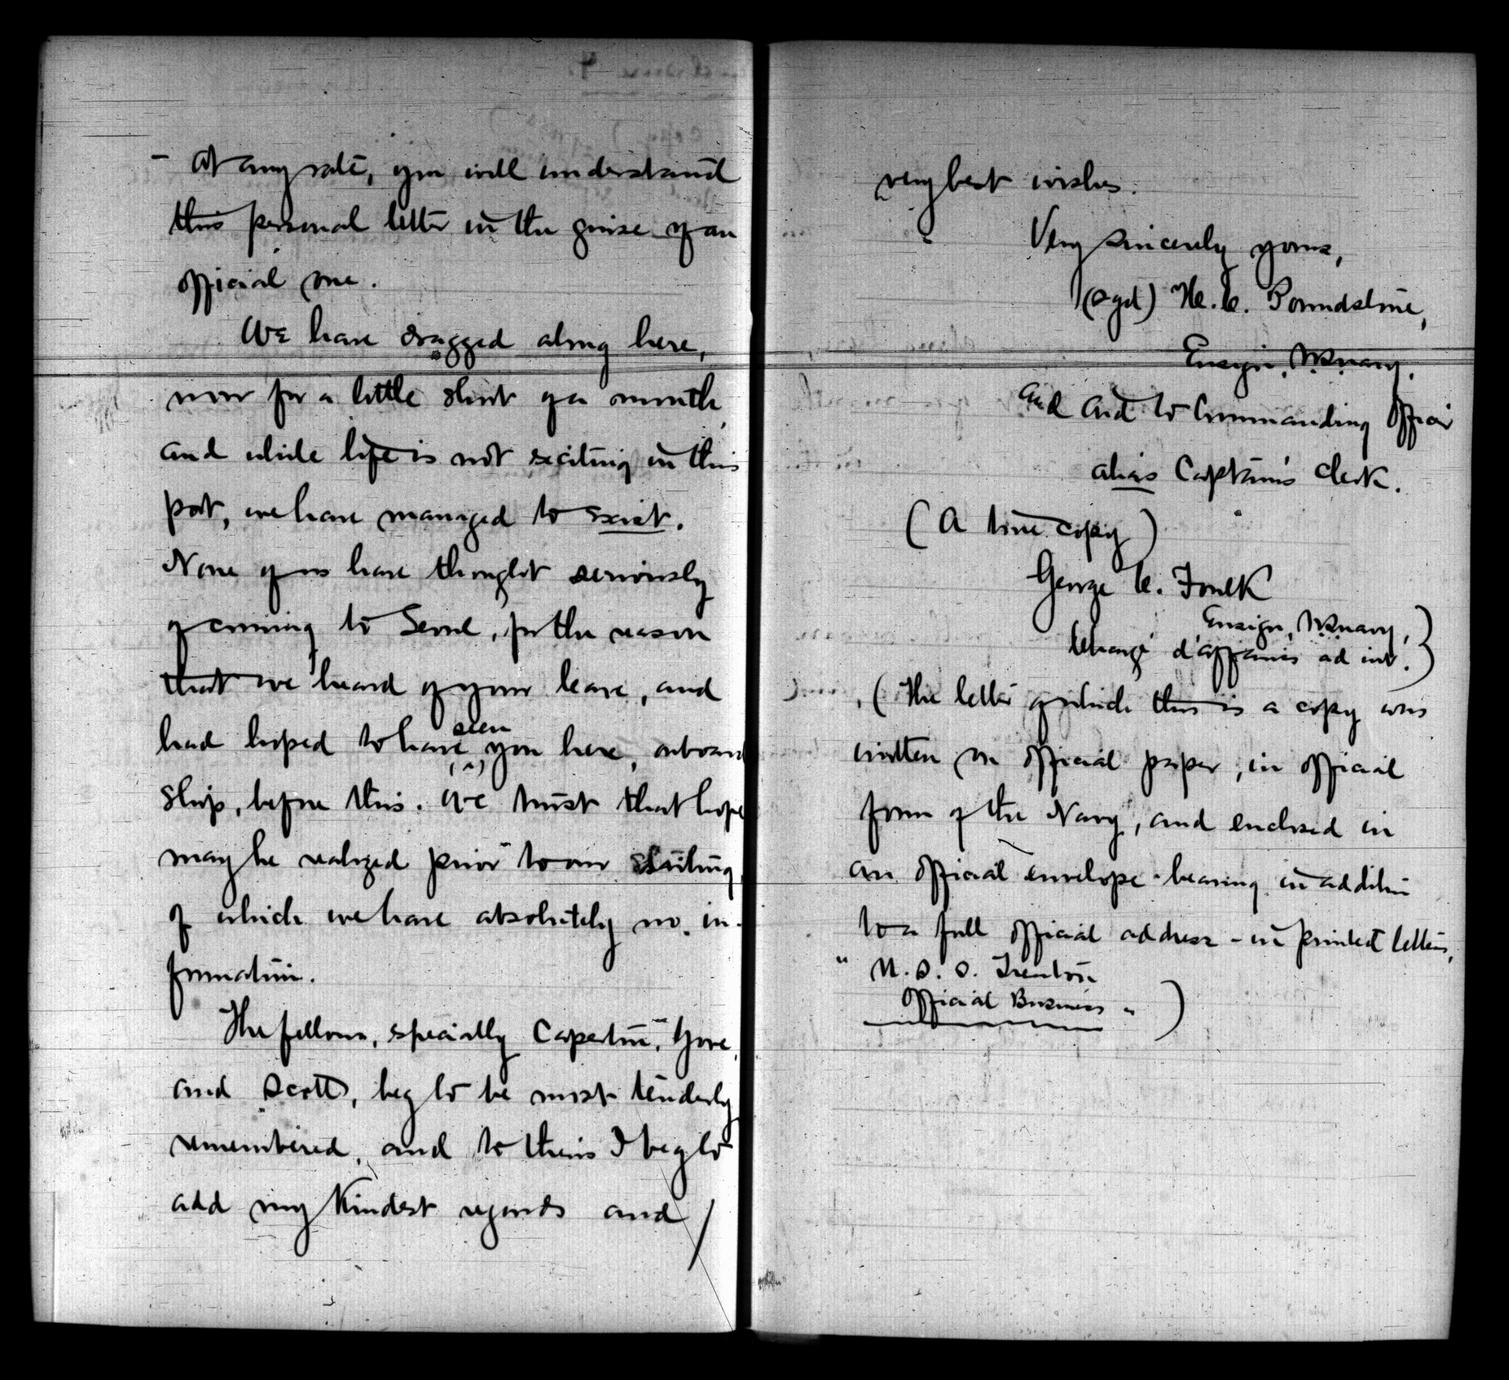 - At any rate, you will understand
this personal letter in the guise of an
official one.
We have dragged along here,
now for a little short of a month,
and while life is not exciting in this
port, we have managed to exist.
None of us have thought seriously
of coming to Seoul, for the reason
that we heard of your leave, and
had hoped to have seen you here, onboard
ship, before this. We trust that hope
may be realized prior to our sailing,
of which we have absolutely no in-
formation.
The fellows, specially Caperton, Gove,
and Scott, beg to be most tenderly
remembered, and to theirs I beg to
add my kindest regards and /
very best wishes.
Very sincerely yours,
(sgd) H. C. Poundstone,
Ensign, U.S. Navy,
and aid to Commanding Officer
alias Captain's Clerk.
(A true copy)
George C. Foulk
Ensign, U.S. Navy,
Chargé d'affaires ad int.)
(The letter of which this is a copy was
written on official paper, in official
form of the Navy, and enclosed in
an official envelope - bearing in addition
to a full official address - in printed letters,
"U. S. S. Trenton
Official Business")